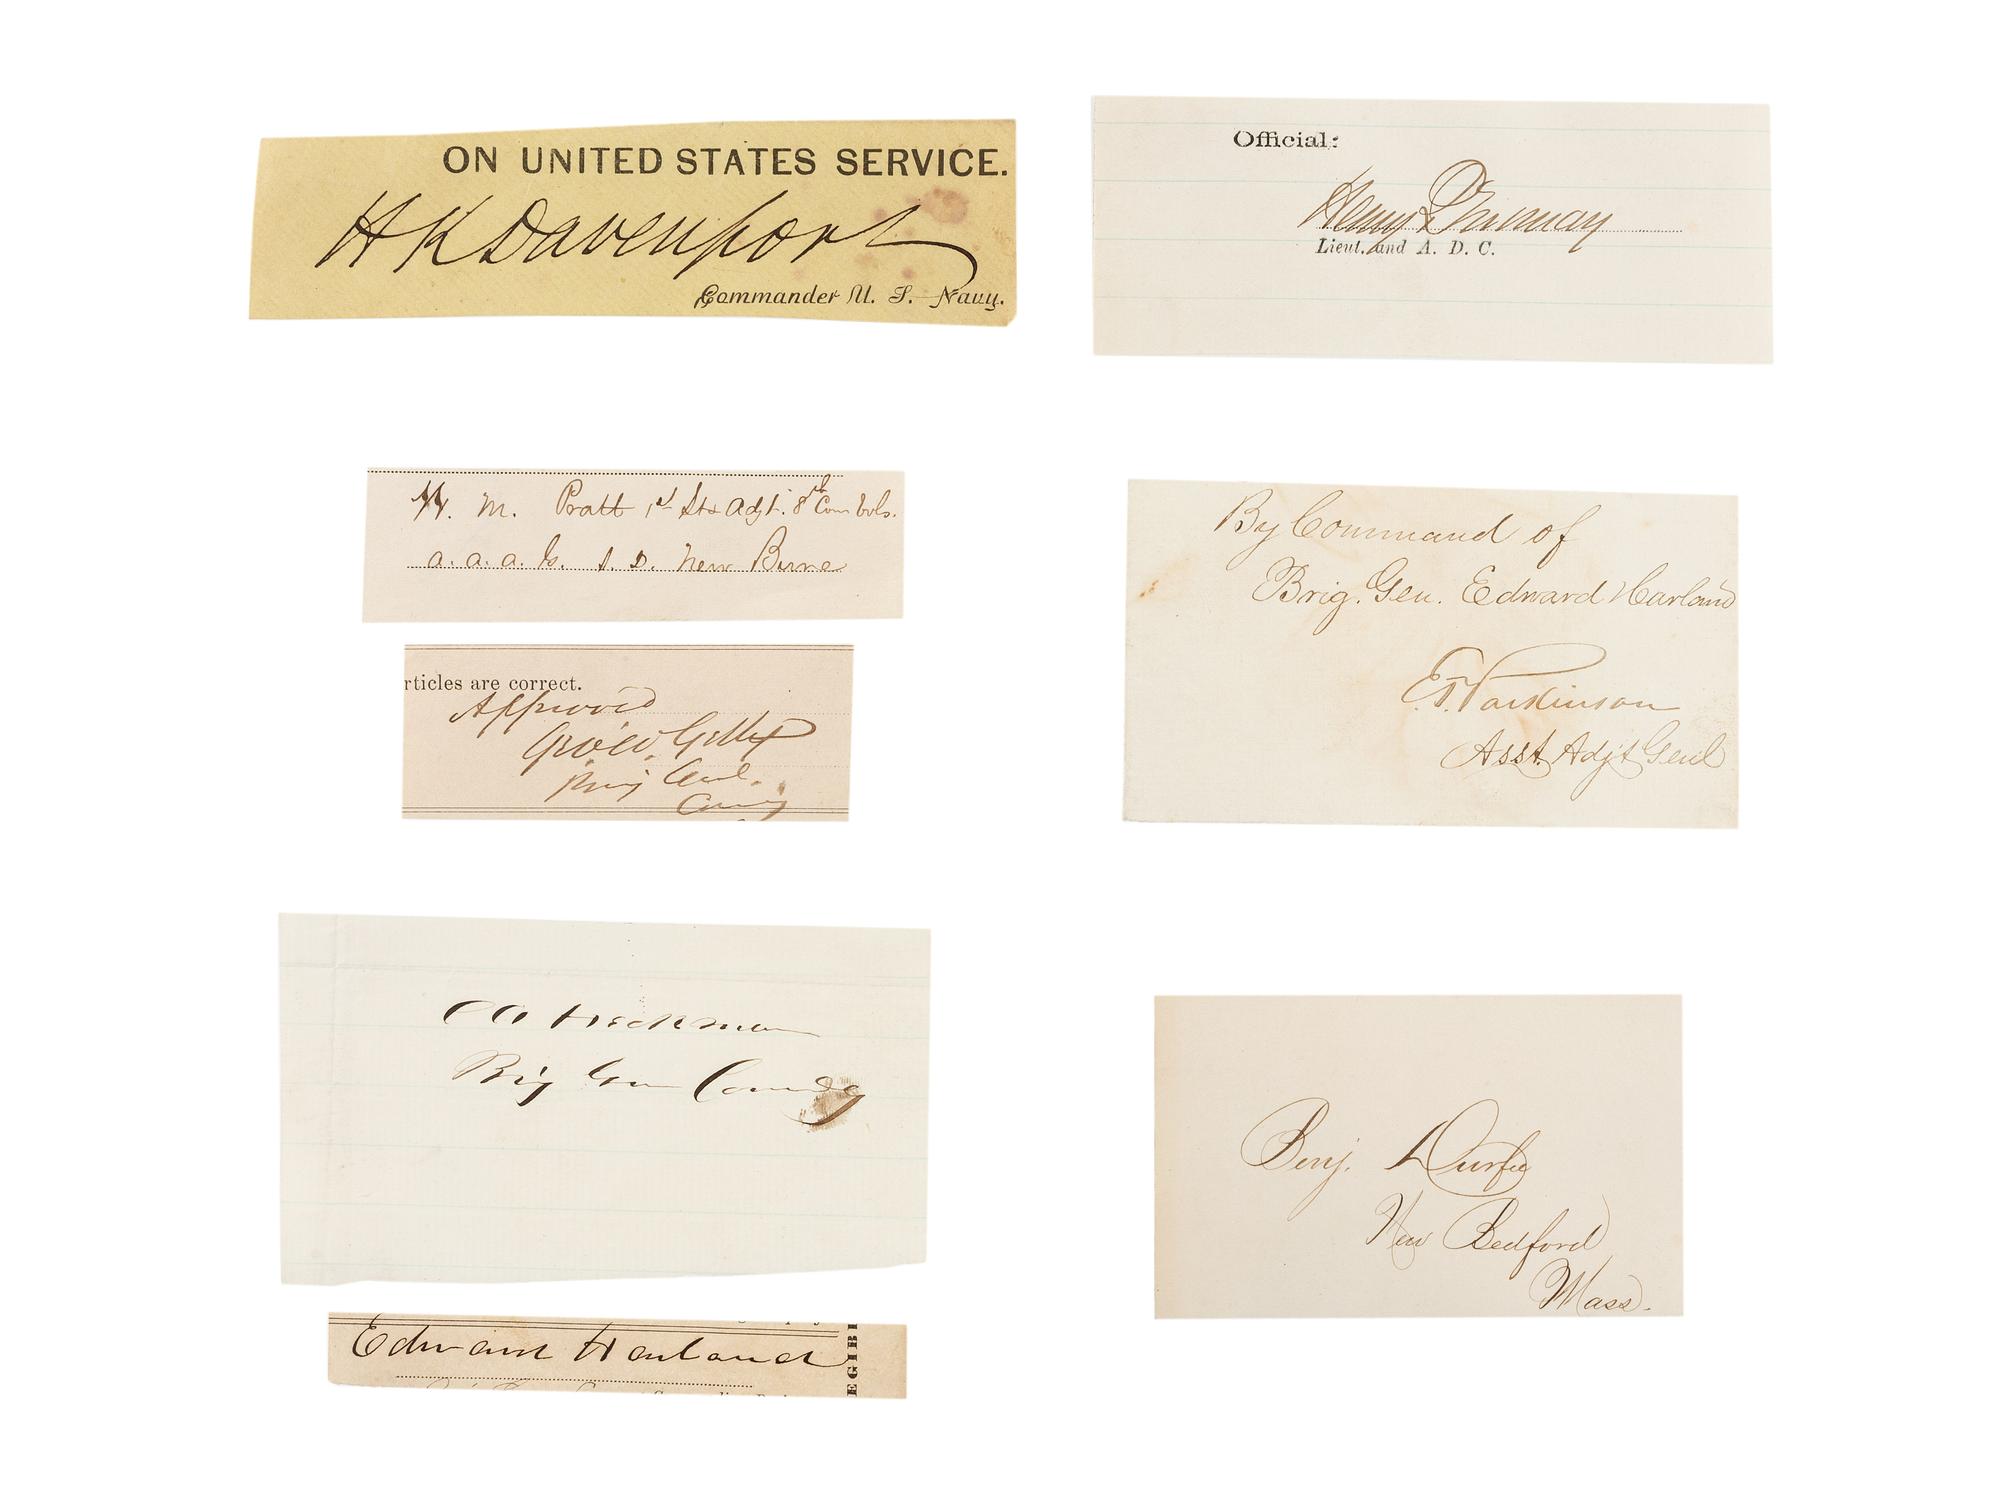 ON UNITED STATES SERVICE.
H K Davenport
Commander U. S. Navy.
Official:
Henry
Lieut. and A. D. C.
W. M. Pratt 1st Lt & Adjt. 8th Con Vols.
a. a. a. G. S. D. New Berne
rticles are correct.
Approved
Geo. W. Getty
Brig Genl.
Comdg
By Command of
Brig. Gen. Edward Harland
E. T. Parkinson
Asst. Adjt Genl
C A Heckman
Brig Gen Comdg
Edward Harland
EGIBL
Benj. Durfee
New Bedford
Mass.